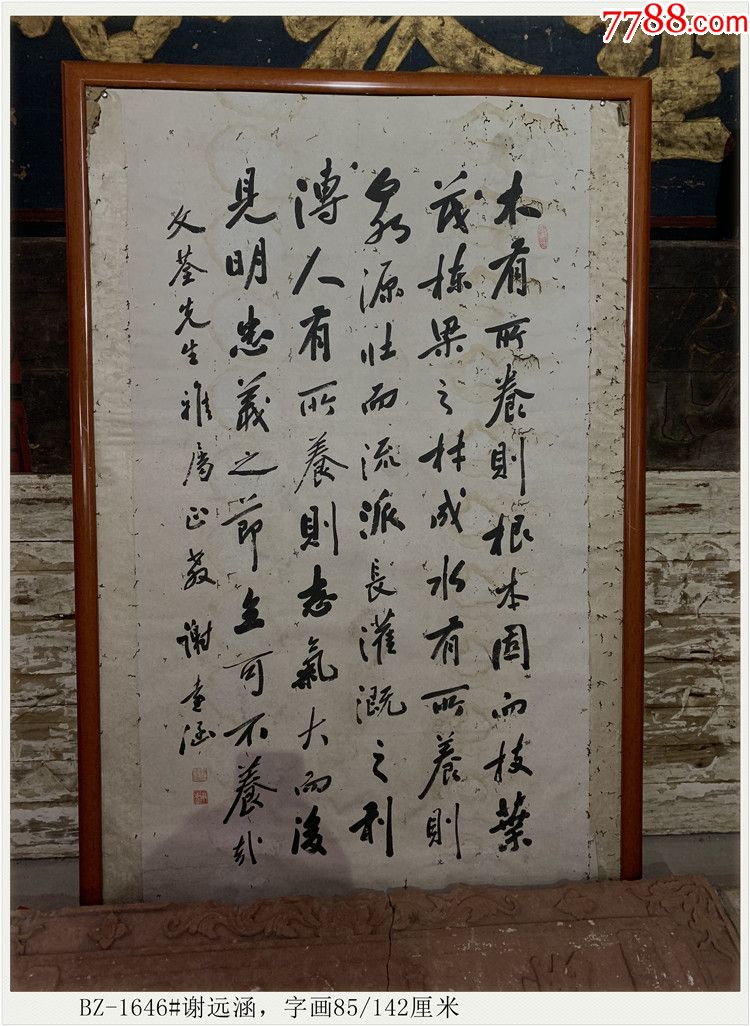 7788.com
木有所養則根本固而枝葉
茂棟梁之材成水有所養則
泉源壮而流派長灌溉之利
溥人有所養則志氣大而後
見明忠義之節立可不養哉
文荃先生雅属正教 謝遠涵
BZ-1646#谢远涵，字画85/142厘米